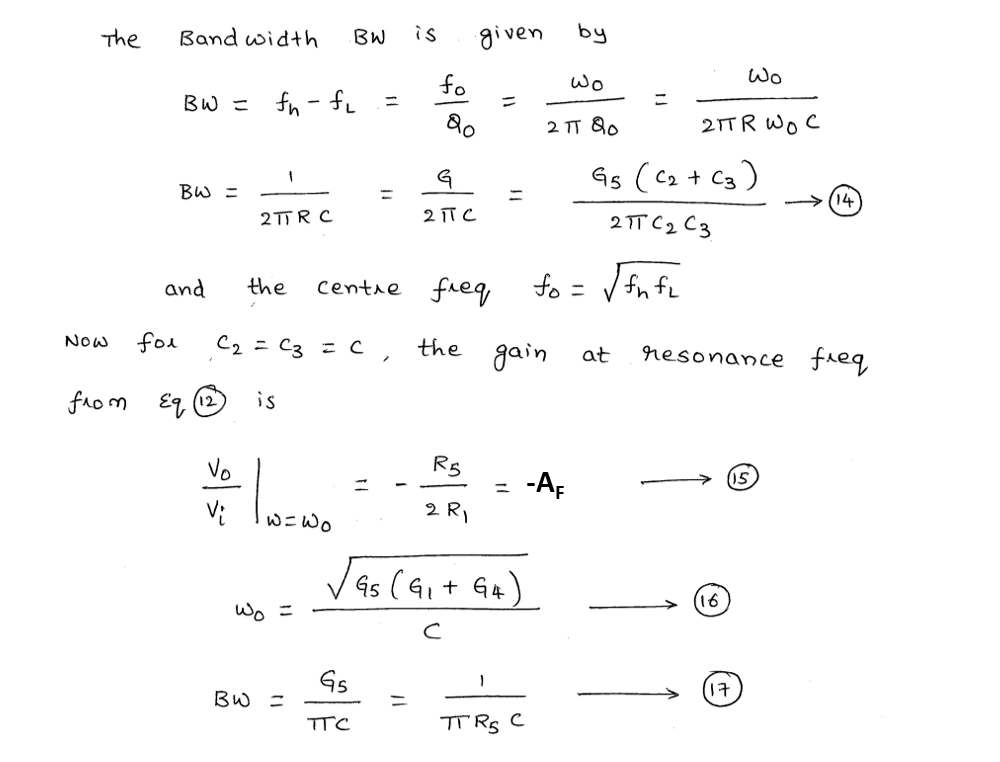 The Bandwidth BW is given by
BW = fh - fL = fo/Qo = ωo/2πQo = ωo/2πRωoC
BW = 1/2πRC = G/2πC = G5(C2 + C3)/2πC2C3 → 14
and the centre freq fo = √fhfL
Now for C2 = C3 = C, the gain at resonance freq
from Eq 12 is
Vo/Vi |ω=ωo = - R5/2R1 = -AF → 15
ωo = √G5(G1 + G4)/C → 16
BW = G5/πC = 1/πR5C → 17